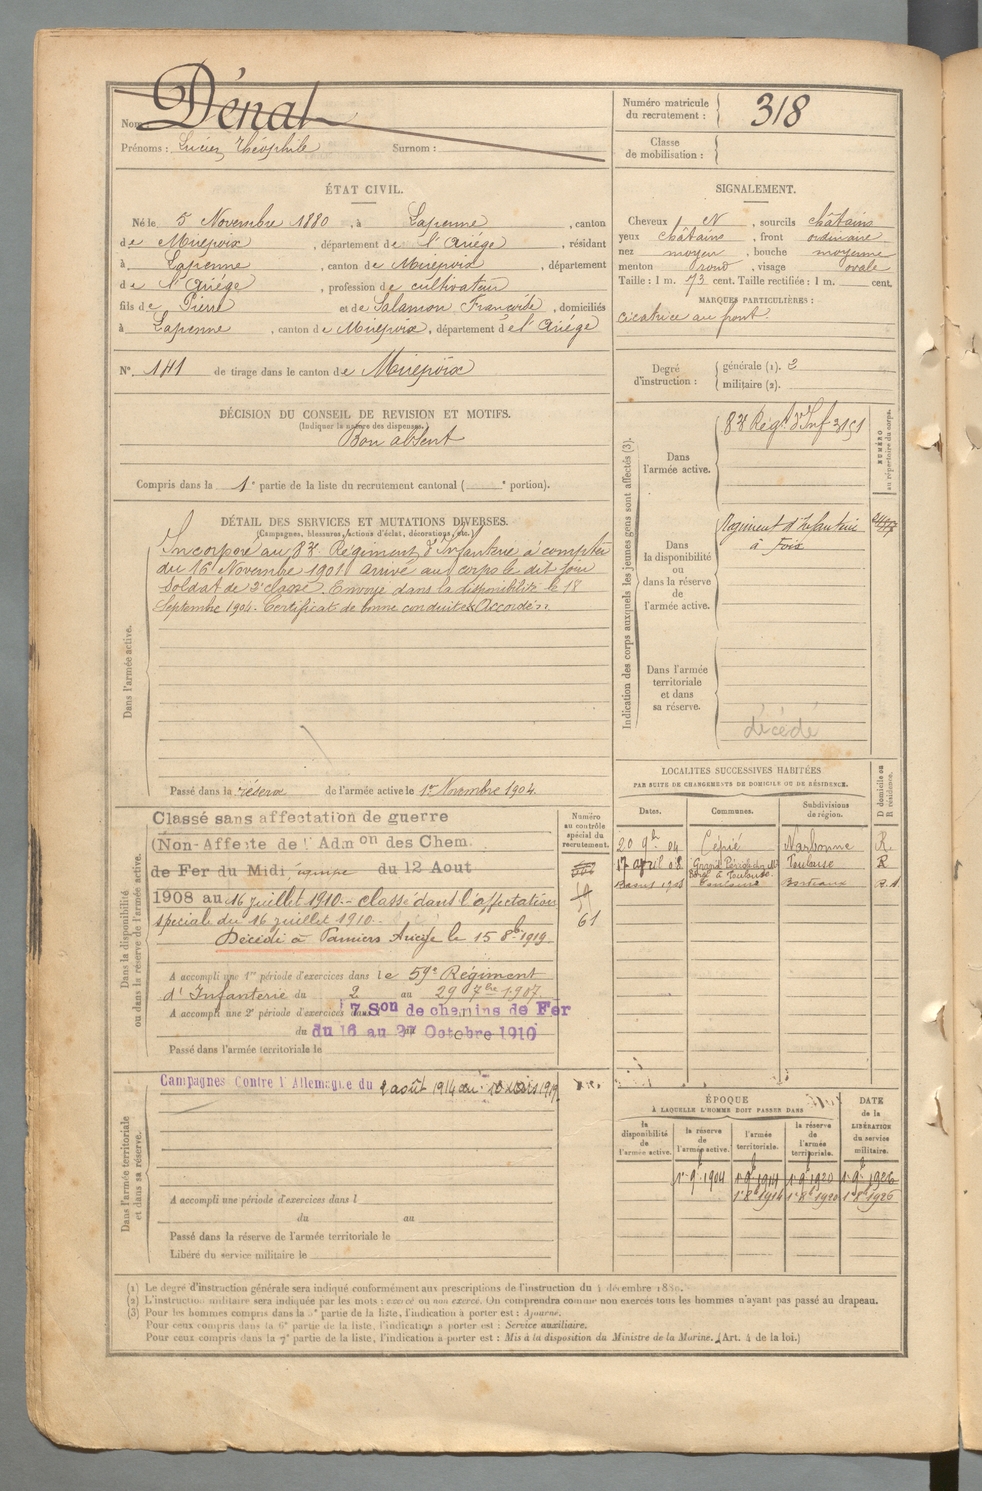 Nom : Dénat
Prénoms : Lucien Théophile Surnom :
ÉTAT CIVIL.
Né le 5 Novembre 1880, à Lapenne, canton
de Mirepoix, département de l'Ariège, résidant
à Lapenne, canton de Mirepoix, département
de l'Ariège, profession de cultivateur
fils de Pierre et de Salamon Françoise, domiciliés
à Lapenne, canton de Mirepoix, département de l'Ariège
N° 141 de tirage dans le canton de Mirepoix
DÉCISION DU CONSEIL DE REVISION ET MOTIFS.
(Indiquer la nature des dispenses.)
Bon absent
Compris dans la 1e partie de la liste du recrutement cantonal ( e portion).
DÉTAIL DES SERVICES ET MUTATIONS DIVERSES.
(Campagnes, blessures, actions d'éclat, décorations, etc.)
Dans l'armée active.
Incorporé au 83e Régiment d'Infanterie à compter
du 16 Novembre 1901 arrivé au corps le dit jour
Soldat de 2e classe. Envoyé dans la disponibilité le 18
Septembre 1904. Certificat de bonne conduite Accordé.
Passé dans la réserve de l'armée active le 1er Novembre 1904.
Dans la disponibilité
ou dans la réserve de l'armée active.
Classé sans affectation de guerre
(Non-Affecté de l'Admon des Chem.
de Fer du Midi, équipe du 12 Aout
1908 au 16 juillet 1910.- classé dans l'affectation
spéciale du 16 juillet 1910.-
Décédé à Pamiers Ariège le 15 8bre 1919
A accompli une 1re période d'exercices dans le 59e Régiment
d'Infanterie du 2 au 29 7bre 1907
A accompli une 2e période d'exercices dans 7 Son de chemins de Fer
du 16 au 27 Octobre 1910
Passé dans l'armée territoriale le
Numéro
au contrôle
spécial du
recrutement.
61
Dans l'armée territoriale
et dans sa réserve.
Campagnes Contre l'Allemagne du 2 août 1914 au 1919.
A accompli une période d'exercices dans l
du au
Passé dans la réserve de l'armée territoriale le
Libéré du service militaire le
Numéro matricule
du recrutement : 318
Classe
de mobilisation :
SIGNALEMENT.
Cheveux N, sourcils châtains
yeux châtains, front ordinaire
nez moyen, bouche moyenne
menton rond, visage ovale
Taille : 1 m. 73 cent. Taille rectifiée : 1 m. cent.
MARQUES PARTICULIÈRES :
cicatrice au front.
Degré
d'instruction :
générale (1). 2
militaire (2).
Indication des corps auxquels les jeunes gens sont affectés (3).
NUMÉRO
au répertoire du corps.
Dans
l'armée active.
83e Régt d'Inf 3151
Dans
la disponibilité
ou
dans la réserve
de
l'armée active.
Régiment d'Infanterie
à Foix
Dans l'armée
territoriale
et dans
sa réserve.
décédé
LOCALITÉS SUCCESSIVES HABITÉES
PAR SUITE DE CHANGEMENTS DE DOMICILE OU DE RÉSIDENCE.
Dates. Communes. Subdivisions
de région. D domicile ou
R résidence.
20 9bre 04 Cépié Narbonne R.
17 avril 08 Toulouse R
Toulouse Bordeaux
ÉPOQUE
À LAQUELLE L'HOMME DOIT PASSER DANS
la
disponibilité
de
l'armée active.
la réserve
de
l'armée active.
l'armée
territoriale.
la réserve
de
l'armée
territoriale.
DATE
de la
LIBÉRATION
du service
militaire.
1er 9bre 1904 1er 9bre 1914 1er 9bre 1920 1er 9bre 1926
1er 8bre 1914 1er 8bre 1920 1er 8bre 1926
(1) Le degré d'instruction générale sera indiqué conformément aux prescriptions de l'instruction du 4 décembre 1889.
(2) L'instruction militaire sera indiquée par les mots : exercé ou non exercé. On comprendra comme non exercés tous les hommes n'ayant pas passé au drapeau.
(3) Pour les hommes compris dans la 5e partie de la liste, l'indication à porter est : Ajourné.
Pour ceux compris dans la 6e partie de la liste, l'indication à porter est : Service auxiliaire.
Pour ceux compris dans la 7e partie de la liste, l'indication à porter est : Mis à la disposition du Ministre de la Marine. (Art. 4 de la loi.)